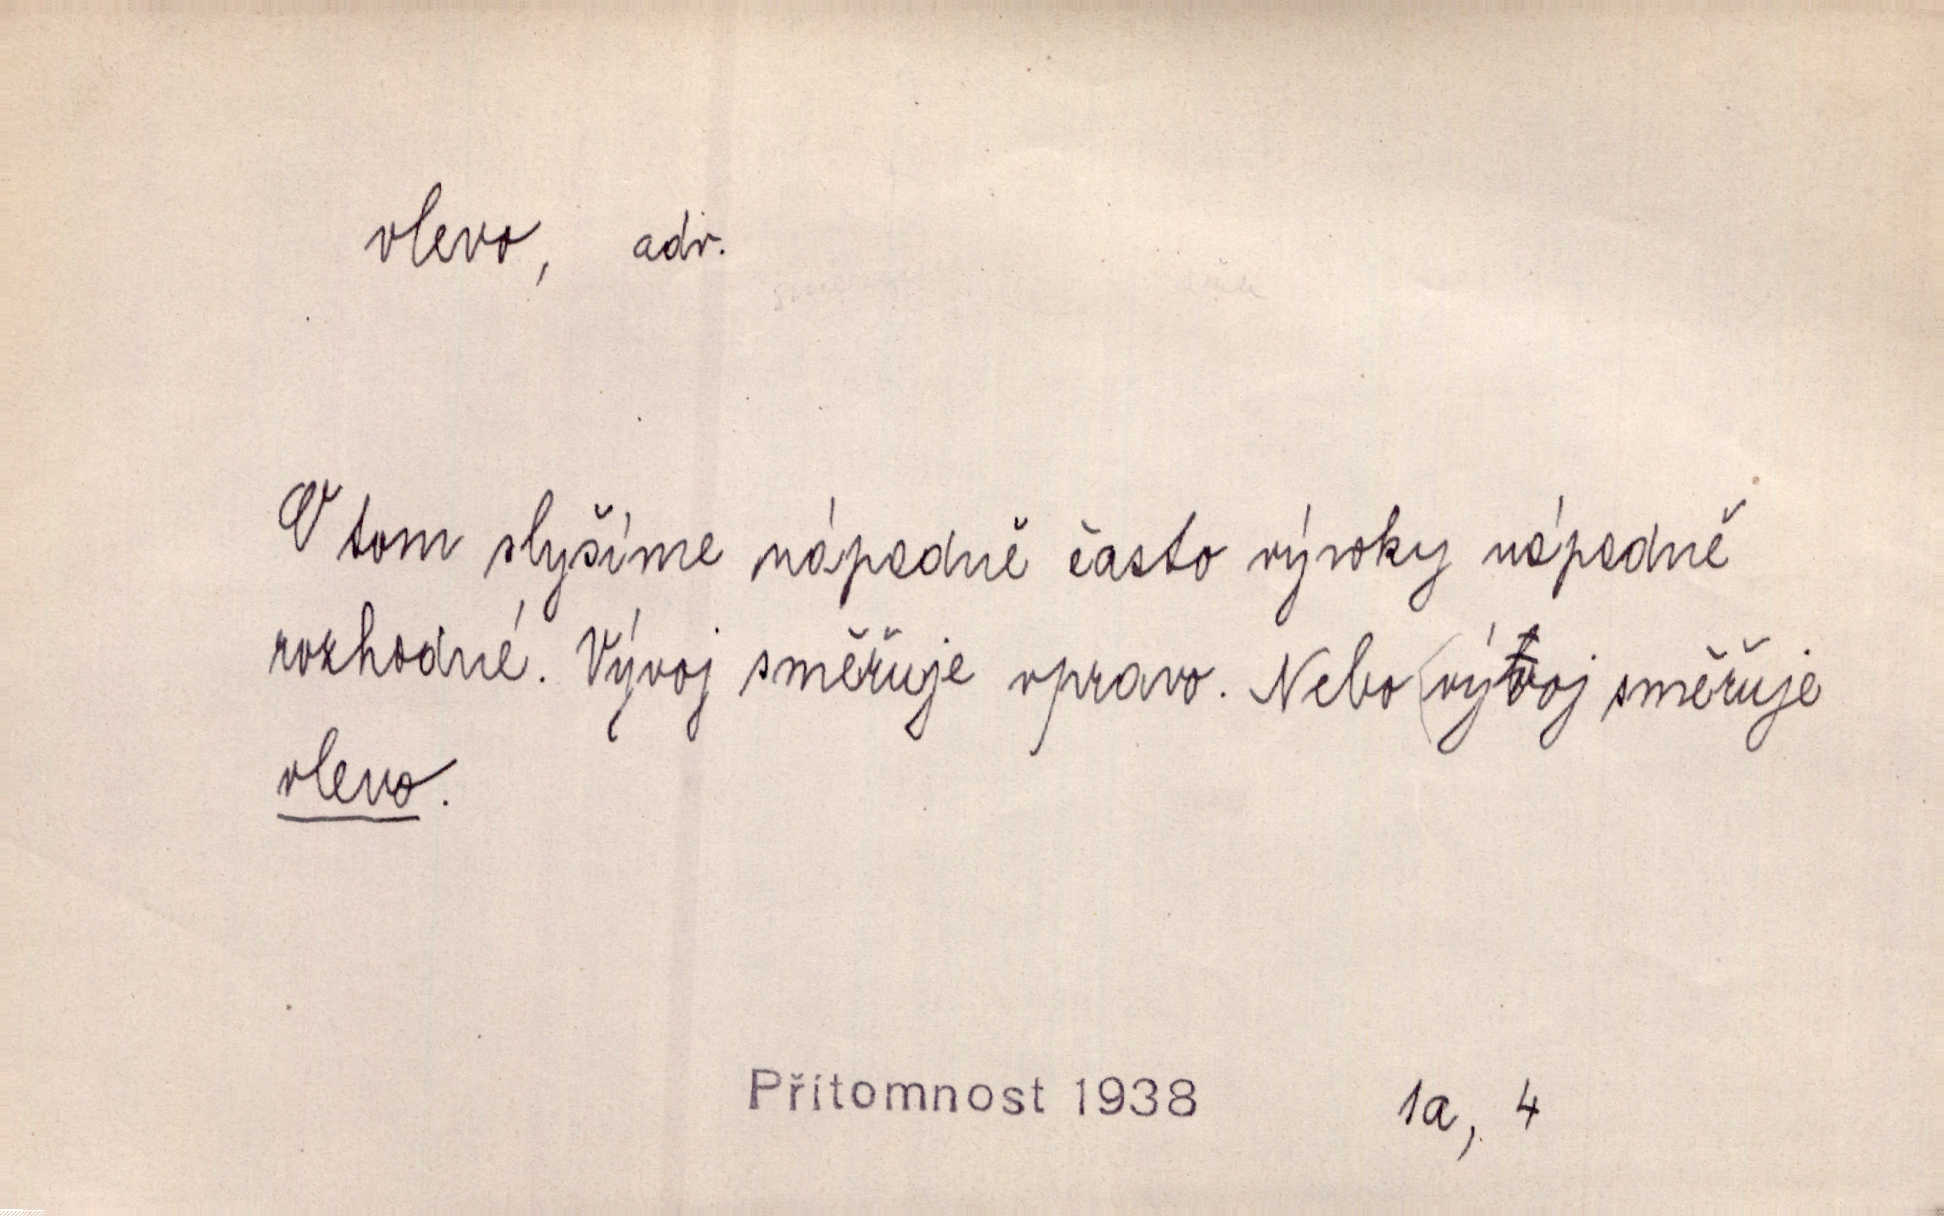 vlevo, adv.
O tom slyšíme nápadně často výroky nápadně
rozhodné. Vývoj směřuje vpravo. Nebo (vývoj směřuje
vlevo.
Přítomnost 1938 1a, 4